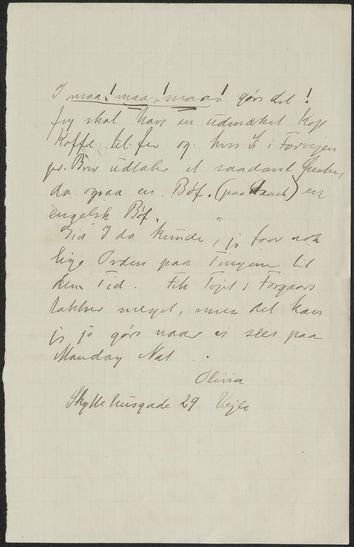 I maa! maa! maa! gøre det!
Jeg skal have en udmærket Kop
Kaffe til Jer og hvis I i Forvejen
pr. Brev udtaler et saadant Ønske,
da ogsaa en Bøf. (paa Dansk) en
engelsk Bøf.
Gid I da kunde, jeg faar nok
lige Orden paa Tingene til
den Tid. Fik Tøjet i Forgaars
takker meget, men det kan
jeg jo gøre naar vi sees paa
Mandag Nat..
Olivia
Skyttehusgade 29 Vejle